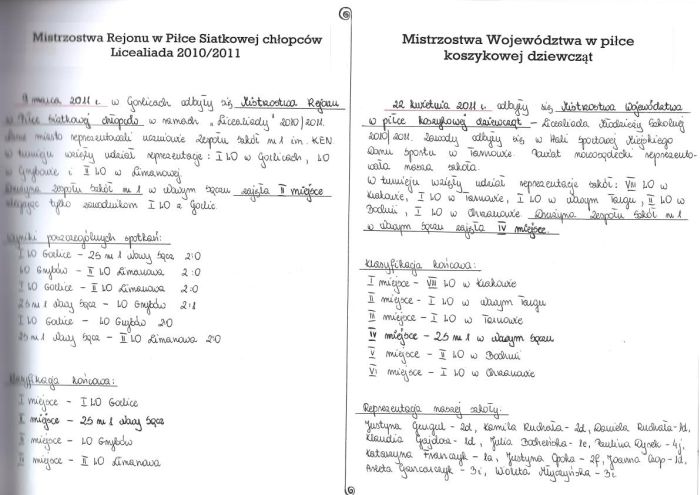 Mistrzostwa Rejonu w Piłce Siatkowej chłopców
Licealiada 2010/2011
9 marca 2011 r. w Gorlicach odbyły się Mistrzostwa Rejonu
w Piłce Siatkowej chłopców w ramach „Licealiady" 2010/2011.
miasto reprezentowali uczniowie Zespołu Szkół nr 1 im. KEN
w turnieju wzięły udział reprezentacje: I LO w Gorlicach, LO
w Grybowie i II LO w Limanowej.
Drużyna Zespołu Szkół nr 1 w Nowym Sączu zajęła II miejsce
ulegając tylko zawodnikom I LO z Gorlic.
Wyniki poszczególnych spotkań:
I LO Gorlice - ZS nr 1 Nowy Sącz 2:0
LO Grybów - II LO Limanowa 2:0
I LO Gorlice - II LO Limanowa 2:0
ZS nr 1 Nowy Sącz - LO Grybów 2:1
I LO Gorlice - LO Grybów 2:0
ZS nr 1 Nowy Sącz - II LO Limanowa 2:0
Klasyfikacja końcowa:
I miejsce - I LO Gorlice
II miejsce - ZS nr 1 Nowy Sącz
miejsce - LO Grybów
miejsce - II LO Limanowa
Mistrzostwa Województwa w piłce
koszykowej dziewcząt
22 kwietnia 2011 r. odbyły się Mistrzostwa Województwa
w piłce koszykowej dziewcząt - Licealiada Młodzieży Szkolnej
2010/2011. Zawody odbyły się w Hali Sportowej Miejskiego
Domu Sportu w Tarnowie. Powiat nowosądecki reprezento-
wała nasza szkoła.
W turnieju wzięły udział reprezentacje szkół: VIII LO w
Krakowie, I LO w Tarnowie, I LO w Nowym Targu, II LO w
Bochni, I LO w Chrzanowie. Drużyna Zespołu Szkół nr 1
w Nowym Sączu zajęła IV miejsce.
Klasyfikacja końcowa:
I miejsce - VIII LO w Krakowie
II miejsce - I LO w Nowym Targu
III miejsce - I LO w Tarnowie
IV miejsce - ZS nr 1 w Nowym Sączu
V miejsce - II LO w Bochni
VI miejsce - I LO w Chrzanowie
Reprezentacja naszej szkoły:
Justyna - 2d, Kamila Ruchała - 2d, Daniela Ruchała - 1d,
Klaudia Gajdosz - 1d, Julia Bocheńska - 1e, Paulina - 4j,
Katarzyna Franczyk - 1a, Justyna Opoka - 2f, Joanna - 1d,
Aneta Gancarczyk - 3i, Wioleta - 3i